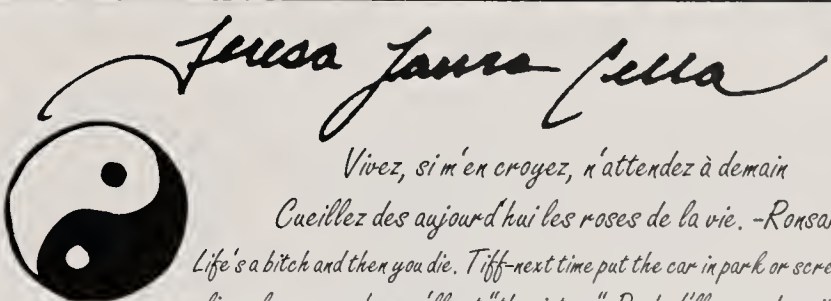 Teresa Laura Cella
Vivez, si m'en croyez, n'attendez à demain
Cueillez des aujourd'hui les roses de la vie. -Ronsar
Life's a bitch and then you die. Tiff-next time put the car in park or scre